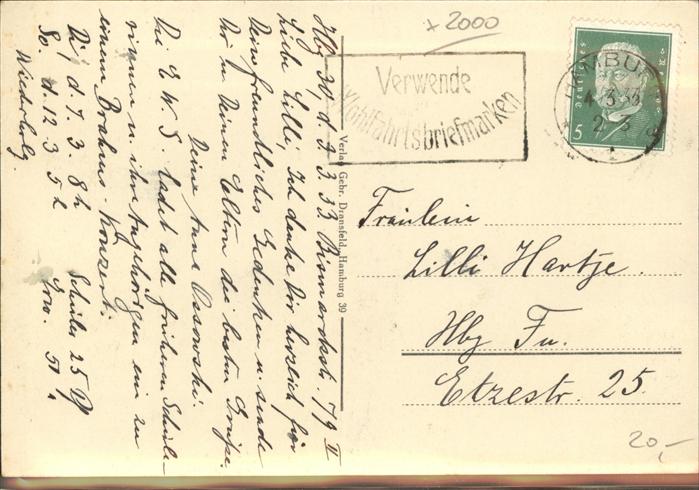 x 2000
Verwende
Wohlfahrtsbriefmarken
Deutsches Reich
5
HAMBURG
4.3.33
2-3
Hbg 20, d. 3. 3. 33. Bismarckstr. 79 II
Liebe Lilli, Ich danke Dir herzlich für
Dein freundliches Gedenken u. sende
Dir u. Deinen Eltern die besten Grüße.
Deine
Die E W S. ladet alle früheren Schüle-
rinnen u. ihre Angehörigen ein zu
einem Brahms-Konzert:
Di d. 7. 3 8 h Schüler 25 Pf
So. d. 12. 3 5 h Erw. 50 "
Wiederholg.
Verlag Gebr. Dransfeld, Hamburg 39
Fräulein
Lilli Hartje.
Hbg Fu.
Etzestr. 25.
20,-